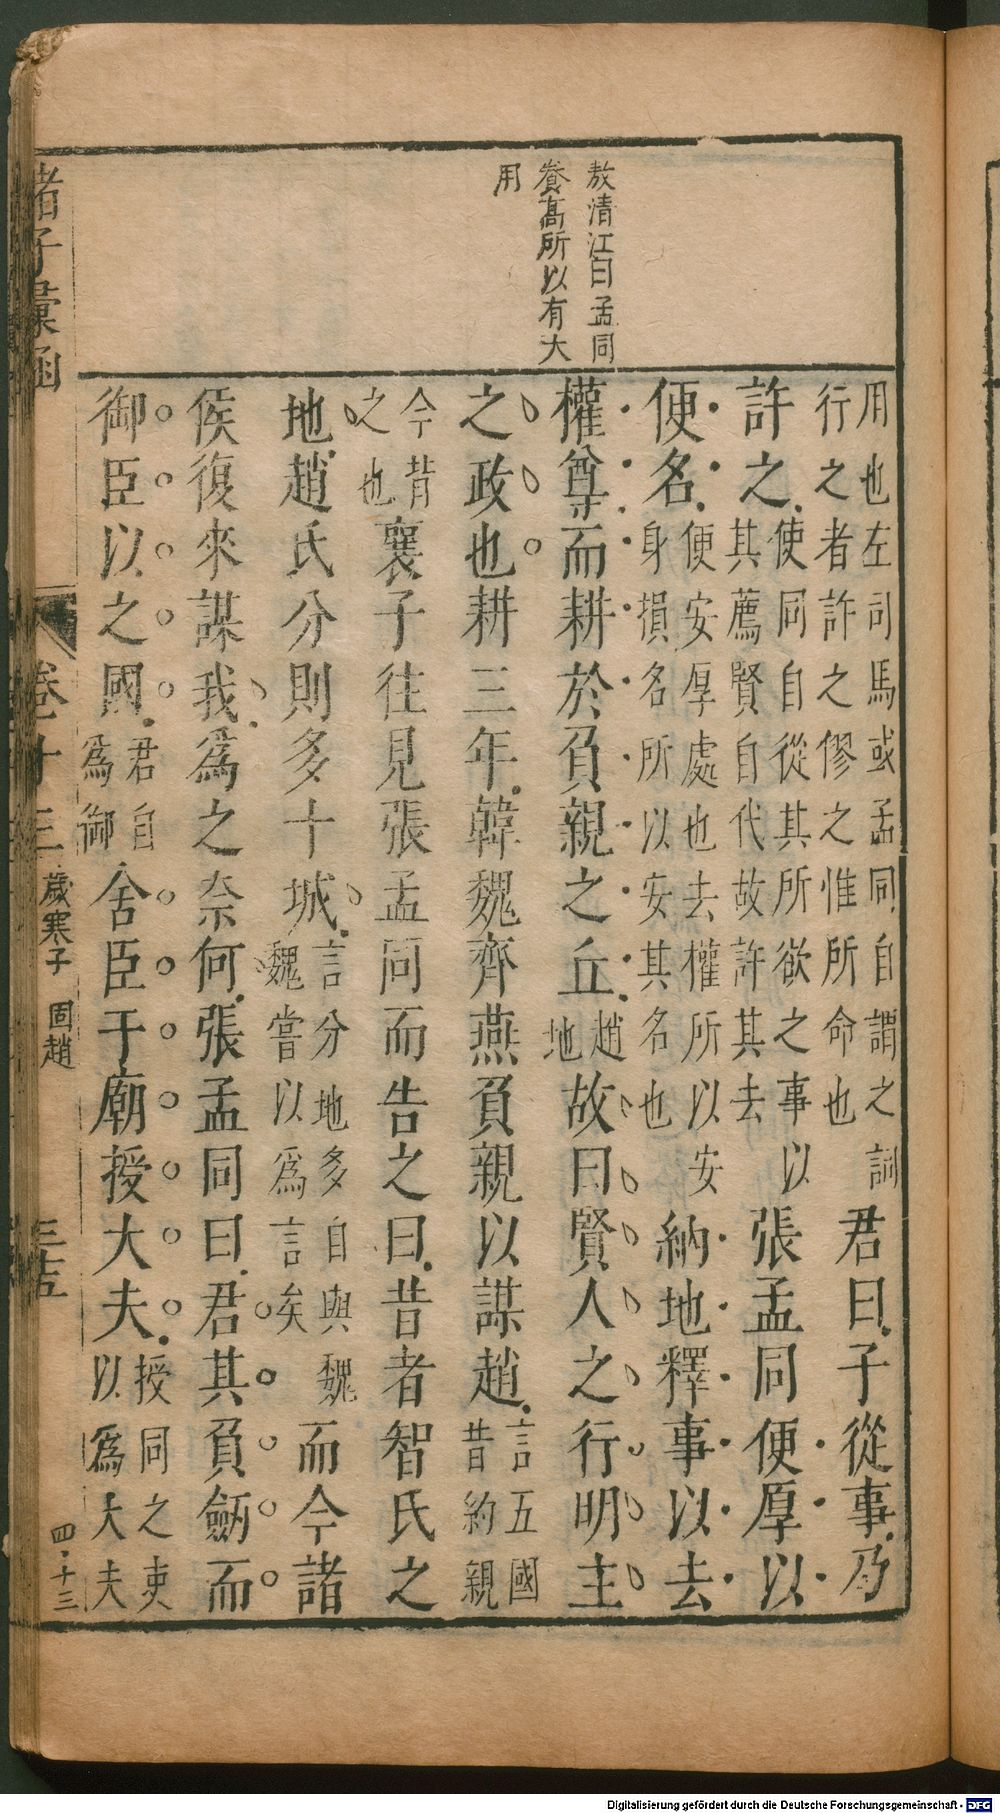 敖清江曰孟同
養高所以有大
用
用也左司馬或孟同自謂之詞
行之者許之僇之惟所命也
君曰子從事乃
許之
使同自從其所欲之事以
其薦賢自代故許其去
張孟同便厚以
便名
便安厚處也去權所以安
身損名所以安其名也
納地釋事以去
權尊而耕於負親之丘
趙
地
故曰賢人之行明主
之政也耕三年韓魏齊燕負親以謀趙
言五國
昔約親
今背
之也
襄子往見張孟同而告之曰昔者智氏之
地趙氏分則多十城
言分地多自與魏
魏嘗以爲言矣
而今諸
侯復來謀我爲之奈何張孟同曰君其負劒而
御臣以之國
君自
爲御
舍臣于廟授大夫
授同之吏
以爲大夫
諸子彙函
卷十三
歲寒子
固趙
三五
四十三
Digitalisierung gefördert durch die Deutsche Forschungsgemeinschaft - DFG